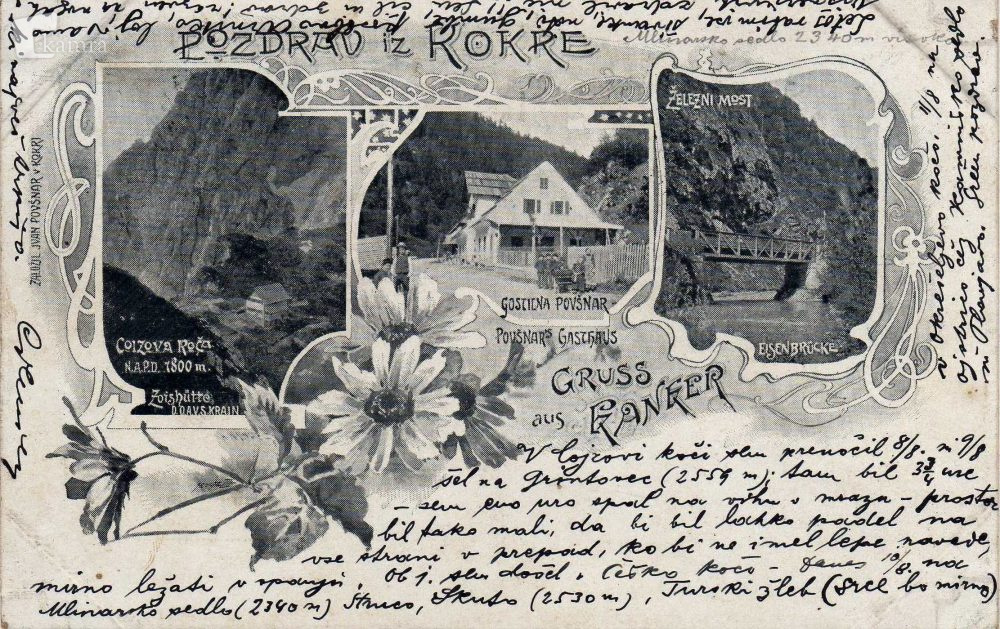 kamra
POZDRAV IZ KOKRE
Mlinarsko sedlo 2340 m visoko.
ZALOŽIL IVAN POVŠNAR V KOKRI
COIZOVA KOČA
N.A.P.D. 1800 m.
Zoishütte
D.Ö.A.V.S. KRAIN
GOSTILNA POVŠNAR
POVŠNAR'S GASTHAUS
ŽELEZNI MOST
EISENBRÜCKE
GRUSS
AUS KANKER
V Cojzovi koči sem prenočil 8/8. in 9/8
šel na Grintovec (2559 m); tam bil 3 3/4 ure
– sem eno uro spal na vrhu v mrazu – prostor
bil tako mali, da bi bil lahko padel na
vse strani v prepad, ko bi ne imel lepe navade,
mirno ležati v spanju. Ob 1. sem došel v Češko kočo – Danes 10/8. na
Mlinarsko sedlo (2340 m) Struco, Skuto (2530 m), Turski žleb (Srce bo mirno)
v Okrešljevo kočo. 11/8 na
Ojstrico čez Kamniško sedlo
in Planjavo. Srčen pozdrav